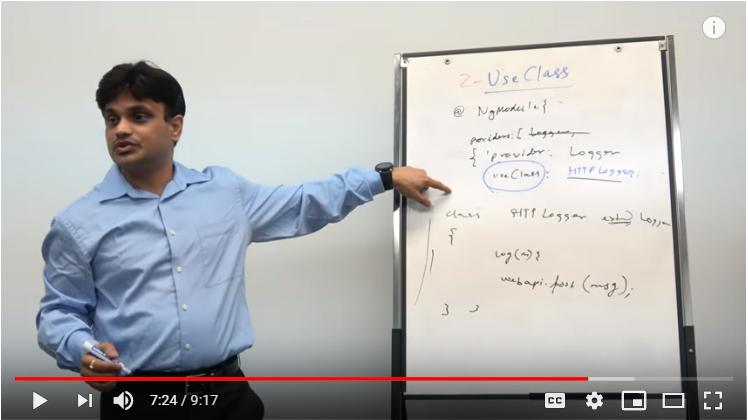 2- UseClass
@ NgModule {
poviders: [ Logger,
{ 'provider: Logger
useClass: HTTPLogger,
class HTTPLogger extnd Logger
{
log(m) {
webapi.post (msg);
} }
7:24 / 9:17
CC